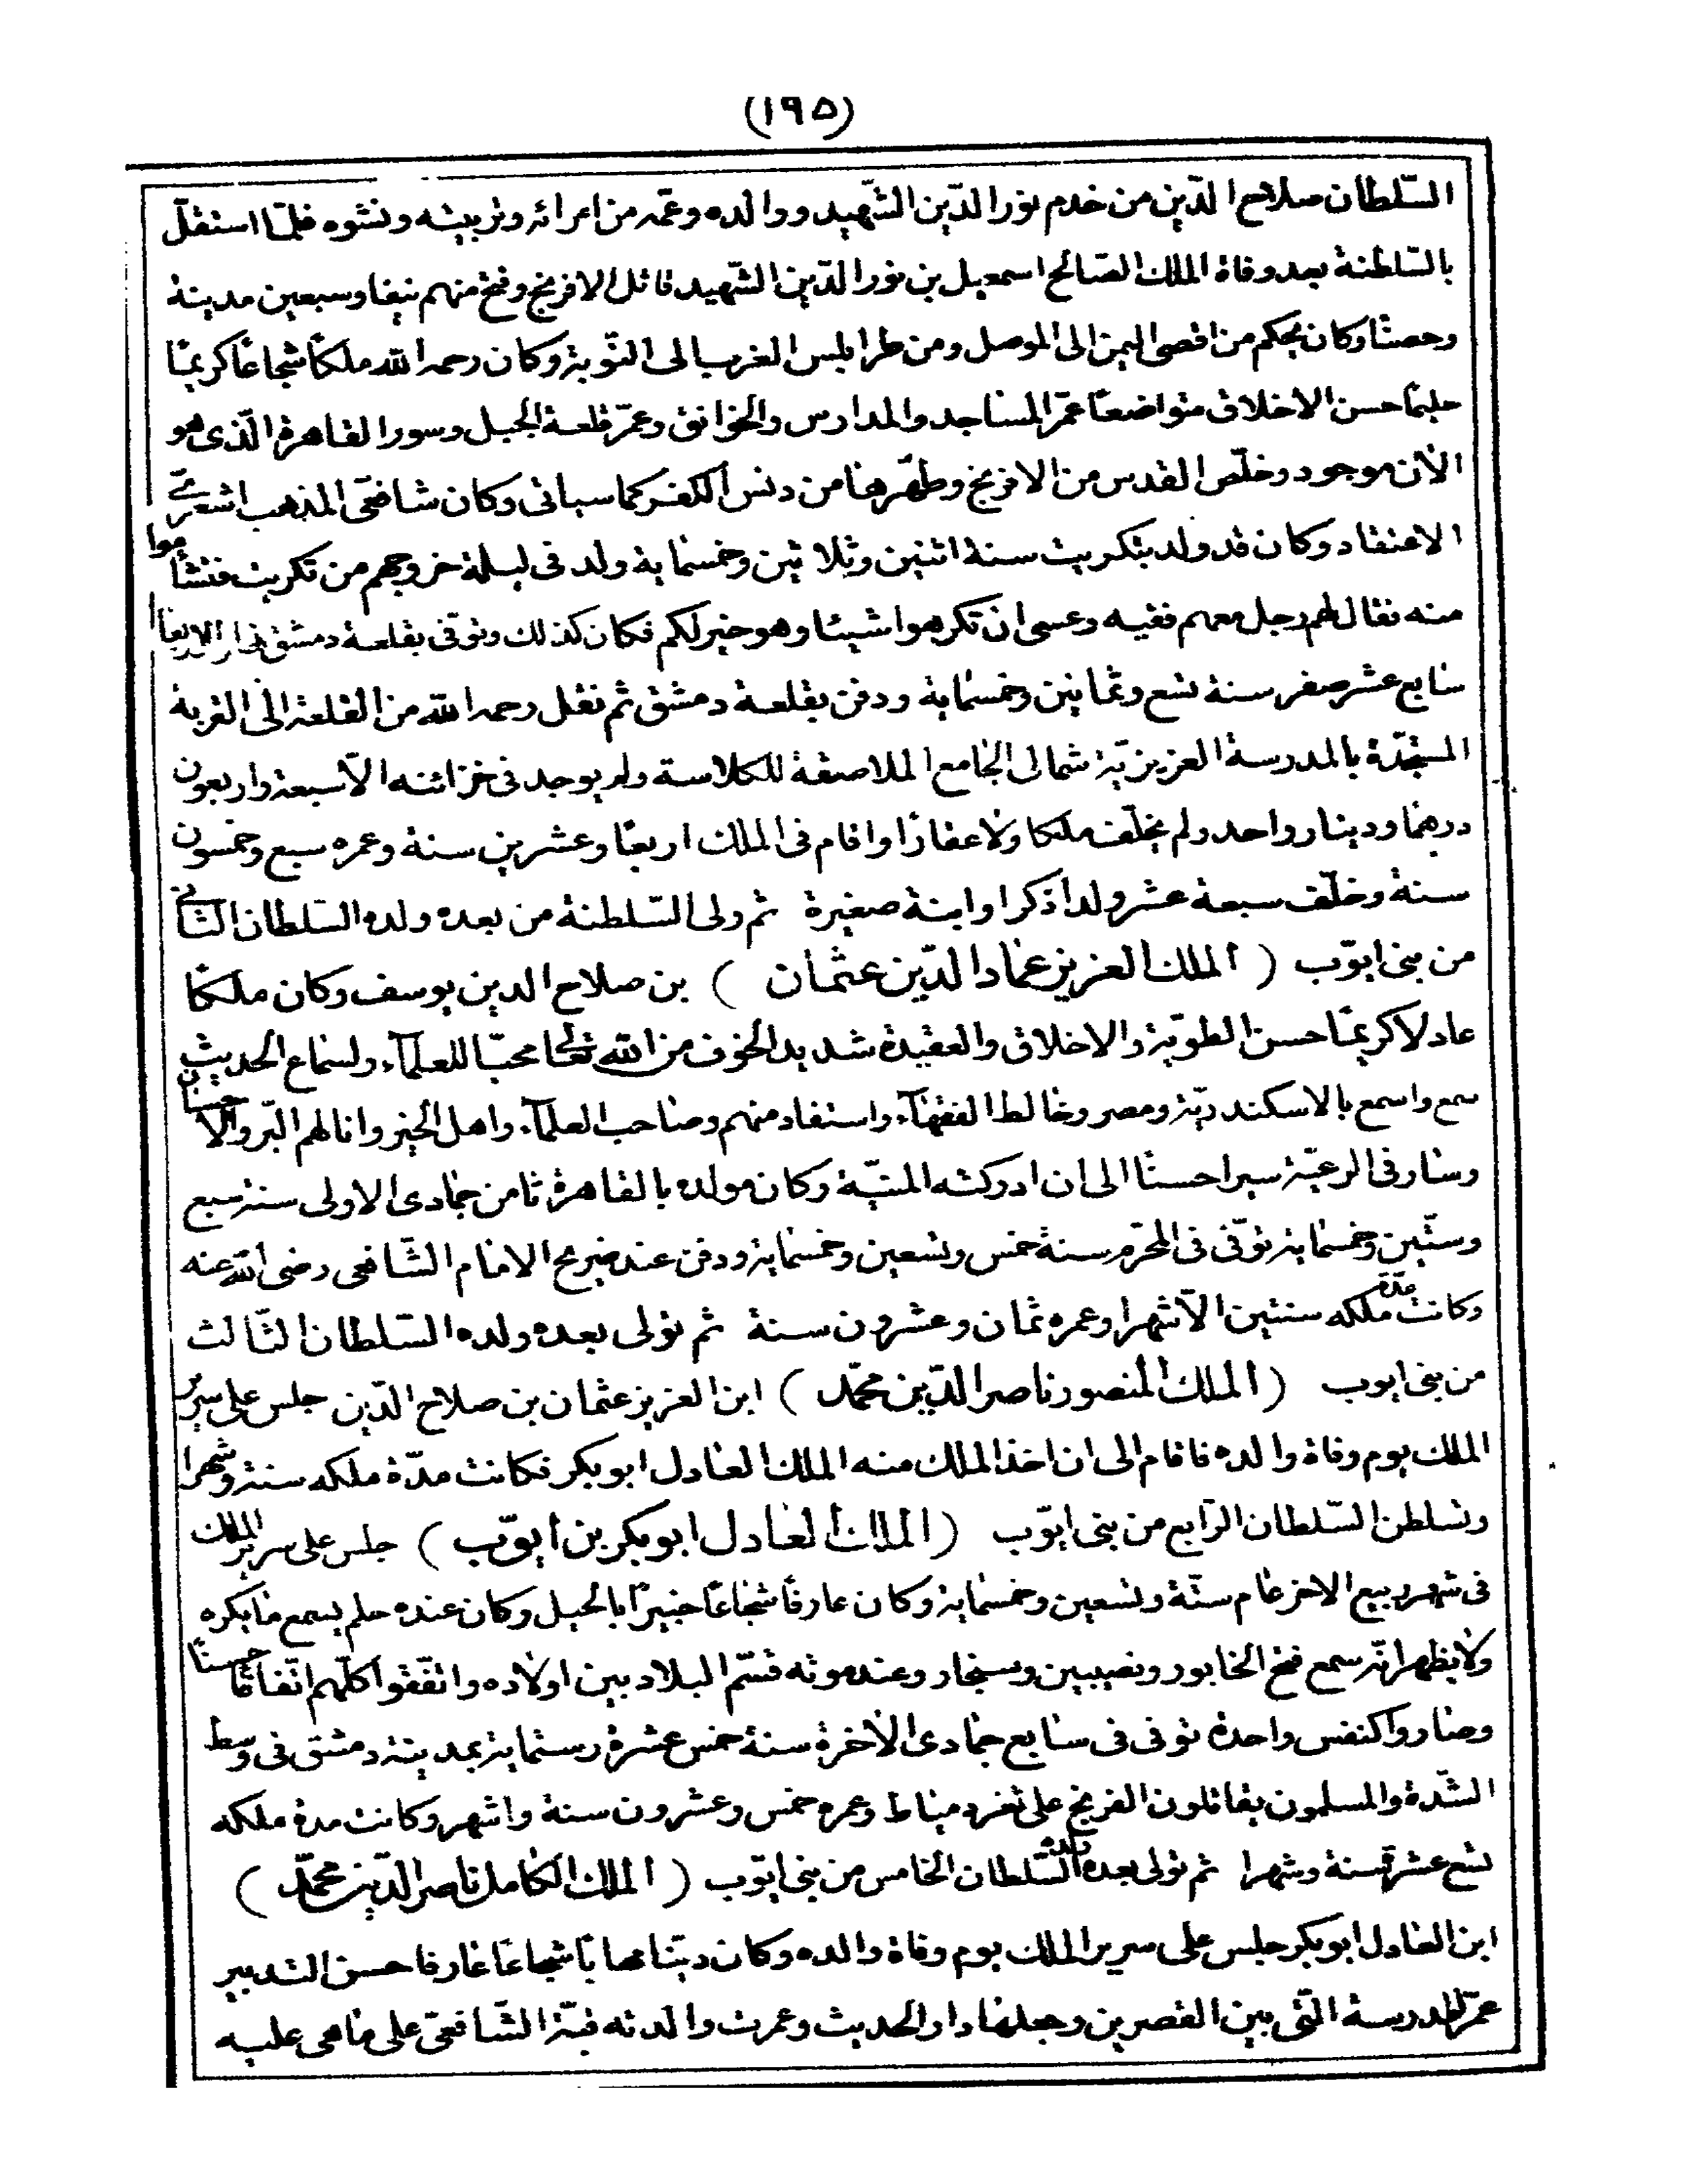 (١٩٥)
السّلطان صلاح الدّين من خدم نور الدّين الشّهيد ووالده وعمّه من امرائه وتربيته ونشوه فلمّا استقلّ
بالسّلطنة بعد وفاة الملك الصّالح اسمعيل بن نور الدّين الشّهيد قاتل الافرنج وفتح منهم نيفا وسبعين مدينة
وحصنًا وكان يحكم من اقصى اليمن الى الموصل ومن طرابلس الغرب الى النّوبة وكان رحمه الله ملكًا شجاعًا كريمًا
حليمًا حسن الاخلاق متواضعًا عمّر المساجد والمدارس والخوانق وعمّر قلعة الجبل وسور القاهرة الّذى هو
الآن موجود وخلّص القدس من الافرنج وطهّرها من دنس الكفر كما سياتى وكان شافعىّ المذهب اشعرىّ
الاعتقاد وكان قد ولد بتكريت سنة اثنين وثلاثين وخمسماية ولد فى ليلة خروجهم من تكريت فتشأموا
منه فقال لهم رجل معهم فقيه وعسى ان تكرهوا شيئا وهو خير لكم فكان كذلك وتوفى بقلعة دمشق نهار الاربعا
سابع عشر صفر سنة تسع وثمانين وخمسماية ودفن بقلعة دمشق ثم نقل رحمه الله من القلعة الى التربة
المستجدّة بالمدرسة العزيزيّة شمالى الجامع الملاصقة للكلاسة ولم يوجد فى خزائنه الّا سبعة واربعون
درهمًا ودينار واحد ولم يخلّف ملكا ولا عقارًا واقام فى الملك اربعًا وعشرين سنة وعمره سبع وخمسون
سنة وخلّف سبعة عشر ولدا ذكرا وابنة صغيرة ثم ولى السّلطنة من بعده ولده السّلطان الثّانى
من بنى ايّوب ( الملك العزيز عماد الدّين عثمان ) بن صلاح الدين يوسف وكان ملكًا
عادلا كريمًا حسن الطويّة والاخلاق والعقيدة شديد الخوف من الله تعالى محبّا للعلمآء ولسماع الحديث
سمع واسمع بالاسكندريّة ومصر وخالط الفقهآء واستفاد منهم وصاحب العلمآء واهل الخير وانالهم البّر والاحسان
وسار فى الرعيّة سيرا حسنًا الى ان ادركته المنيّة وكان مولده بالقاهرة ثامن جمادى الاولى سنة سبع
وستّين وخمسماية توفّى فى المحرّم سنة خمس وتسعين وخمسماية ودفن عند ضريح الامام الشّافعى رضى الله عنه
وكانت مدّة ملكه سنتين الّا شهرا وعمره ثمان وعشرون سنة ثم تولى بعده ولده السّلطان الثّالث
من بنى ايوب ( الملك المنصور ناصر الدّين محمّد ) ابن العزيز عثمان بن صلاح الدّين جلس على سرير
الملك يوم وفاة والده فاقام الى ان اخذ الملك منه الملك العادل ابو بكر فكانت مدّة ملكه سنة وشهرا
وتسلطن السّلطان الرّابع من بنى ايّوب ( الملك العادل ابو بكر بن ايّوب ) جلس على سرير الملك
فى شهر ربيع الاخر عام ستّة وتسعين وخمسماية وكان عارفًا شجاعًا خبيرًا بالحيل وكان عنده حلم يسمع ما يكره
ولا يظهر انّه سمع فتح الخابور ونصيبين وسنجار وعند موته قسّم البلاد بين اولاده واتّفقوا كلّهم اتّفاقًا حسنًا
وصاروا كنفس واحدة توفى فى سابع جمادى الآخرة سنة خمس عشرة وستماية بمدينة دمشق فى وسط
الشّدة والمسلمون يقاتلون الفرنج على ثغر دمياط وعمره خمس وعشرون سنة واشهر وكانت مدة ملكه
تسع عشرة سنة وشهرا ثم تولى بعده ولده السّلطان الخامس من بنى ايّوب ( الملك الكامل ناصر الدّين محمّد )
ابن العادل ابو بكر جلس على سرير الملك يوم وفاة والده وكان ديّنا مهابًا شجاعًا عارفا حسن التدبير
عمّر المدرسة الّتى بين القصرين وجعلها دار الحديث وعمرت والدته قبّة الشّافعىّ على ما هى عليه